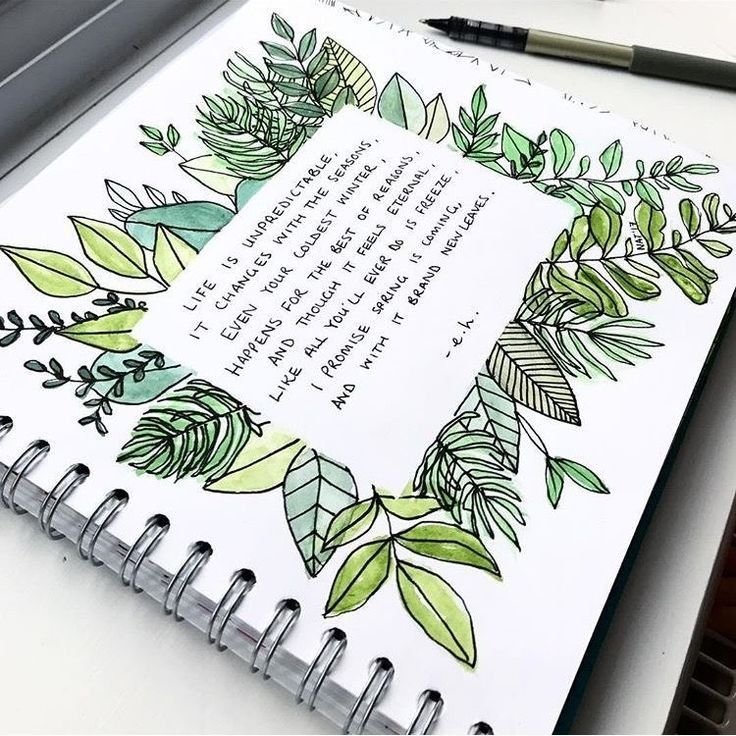 LIFE IS UNPREDICTABLE,
IT CHANGES WITH THE SEASONS,
EVEN YOUR COLDEST WINTER,
HAPPENS FOR THE BEST OF REASONS,
AND THOUGH IT FEELS ETERNAL,
LIKE ALL YOU'LL EVER DO IS FREEZE,
I PROMISE SPRING IS COMING,
AND WITH IT BRAND NEW LEAVES.
-e.h.
NAT'17